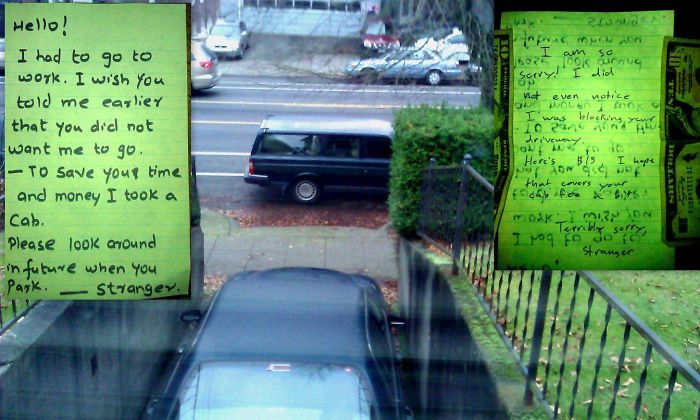 Hello!
I had to go to
work. I wish you
told me earlier
that you did not
want me to go.
— To save your time
and money I took a
Cab.
Please look around
in future when you
Park. — Stranger.
I am so
sorry! I did
not even notice
I was blocking your
driveway.
Here's $15 I hope
that covers your
cab
Terribly sorry,
Stranger